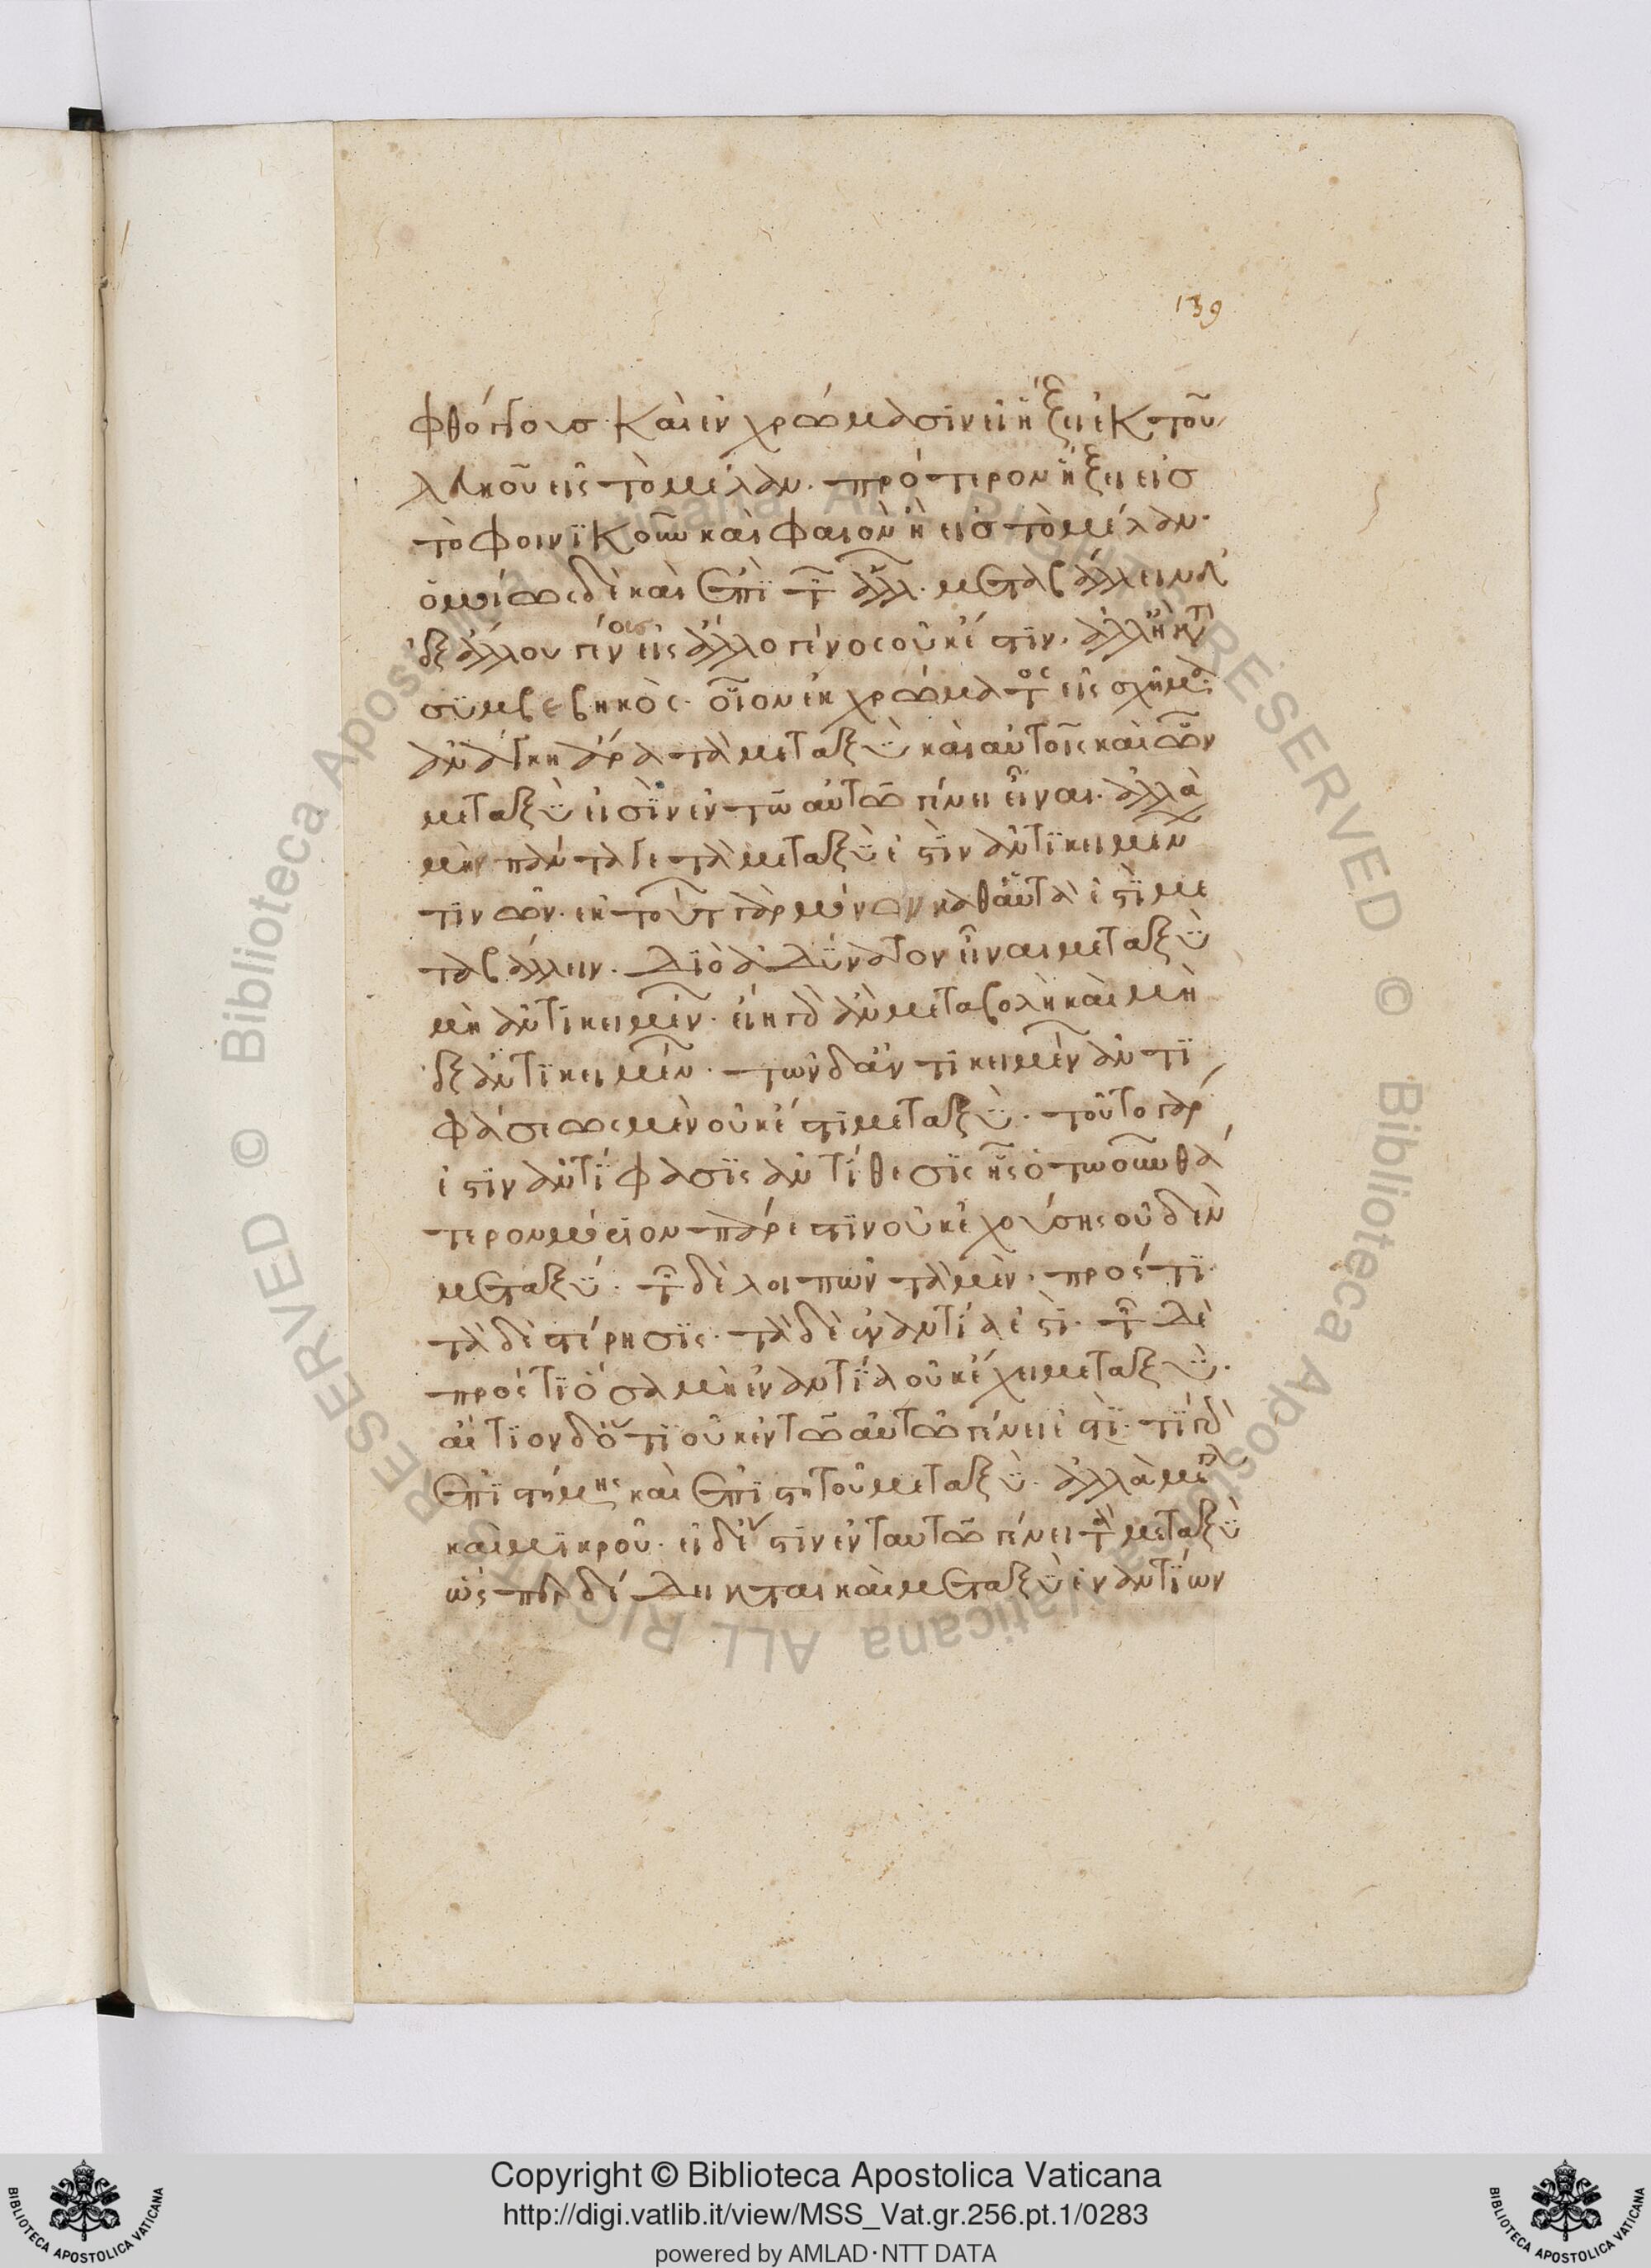 139
φθόγγους καὶ ἐν χρώμασιν εἰ ἥξει ἐκ τοῦ
λευκοῦ εἰς τὸ μέλαν. πρότερον ἥξει εἰς
τὸ φοινϊκοῦν καὶ φαιὸν ἢ εἰς τὸ μέλαν·
ὁμοίως δὲ καὶ ἐπὶ τῶν ἄλλ. μεταβάλλειν δ'
ἐξ ἄλλου γένους εἰς ἄλλο γένος οὐκ ἔστιν. ἀλλ' ἢ κατὰ
συμβεβηκὸς· οἷον ἐκ χρώματος εἰς σχῆμα·
ἀνάγκη ἄρα τὰ μεταξὺ καὶ αὑτοῖς καὶ ὧν
μεταξὺ εἰσὶν ἐν τῶ αὐτῶ γένει εἶναι. ἀλλὰ
μὴν πάντα γε τὰ μεταξὺ ἐστὶν ἀντικειμέν
τινῶν. ἐκ τούτ γὰρ μόνων καθ' αὑτὰ ἐστὶ με
ταβάλλειν. Διὸ ἀδύνατον εἶναι μεταξὺ
μὴ ἀντικειμέν. εἴη γὰρ ἂν μεταβολὴ καὶ μὴ
ἐξ ἀντικειμέν. τῶν δ' ἀντικειμέν ἀντι
φάσεως μὲν οὐκ ἔστι μεταξὺ. τοῦτο γάρ
ἐστὶν ἀντίφασις ἀντίθεσις ἧς ὁτωοῦν θά
τερον μόριον πάρεστιν οὐκ ἐχούσης οὐδὲν
μεταξύ. τῶν δὲ λοιπῶν τὰ μὲν, πρός τι·
τὰ δὲ στέρησις. τὰ δὲ ἐναντία ἐστὶ. τῶν δὲ
πρός τι ὅσα μὴ ἐναντία οὐκ ἔχει μεταξὺ.
αἴτιον δ' ὅτι οὐκ ἐν τῶ αὐτῶ γένει ἐστὶ. τί γὰρ
ἐπιστήμης καὶ ἐπιστητοῦ μεταξὺ. ἀλλὰ μεγάλου
καὶ μικροῦ. εἰ δ' ἐστὶν ἐν ταυτῶ γένει τὰ μεταξὺ
ὡς περ δέδεικται καὶ μεταξὺ ἐναντίων
Copyright © Biblioteca Apostolica Vaticana
http://digi.vatlib.it/view/MSS_Vat.gr.256.pt.1/0283
powered by AMLAD·NTT DATA